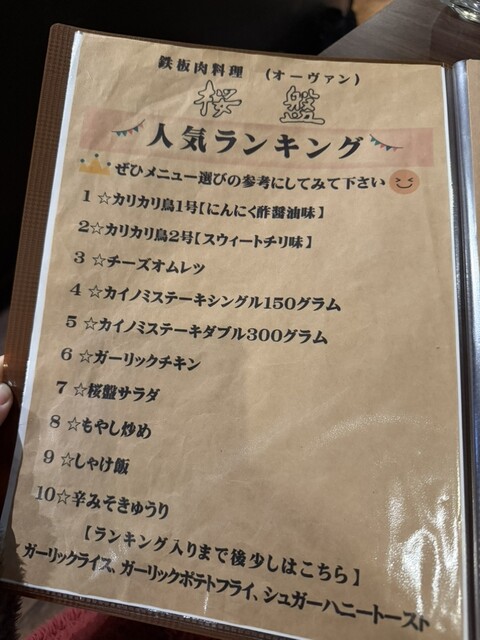 鉄板肉料理　(オーヴァン)
桜　盤
人気ランキング
ぜひメニュー選びの参考にしてみて下さい
1 ☆カリカリ鳥1号【にんにく酢醤油味】
2☆カリカリ鳥2号【スウィートチリ味】
3 ☆チーズオムレツ
4 ☆カイノミステーキシングル150グラム
5 ☆カイノミステーキダブル300グラム
6 ☆ガーリックチキン
7 ☆桜盤サラダ
8 ☆もやし炒め
9 ☆しゃけ飯
10☆辛みそきゅうり
【ランキング入りまで後少しはこちら】
ガーリックライス、ガーリックポテトフライ、シュガーハニートースト